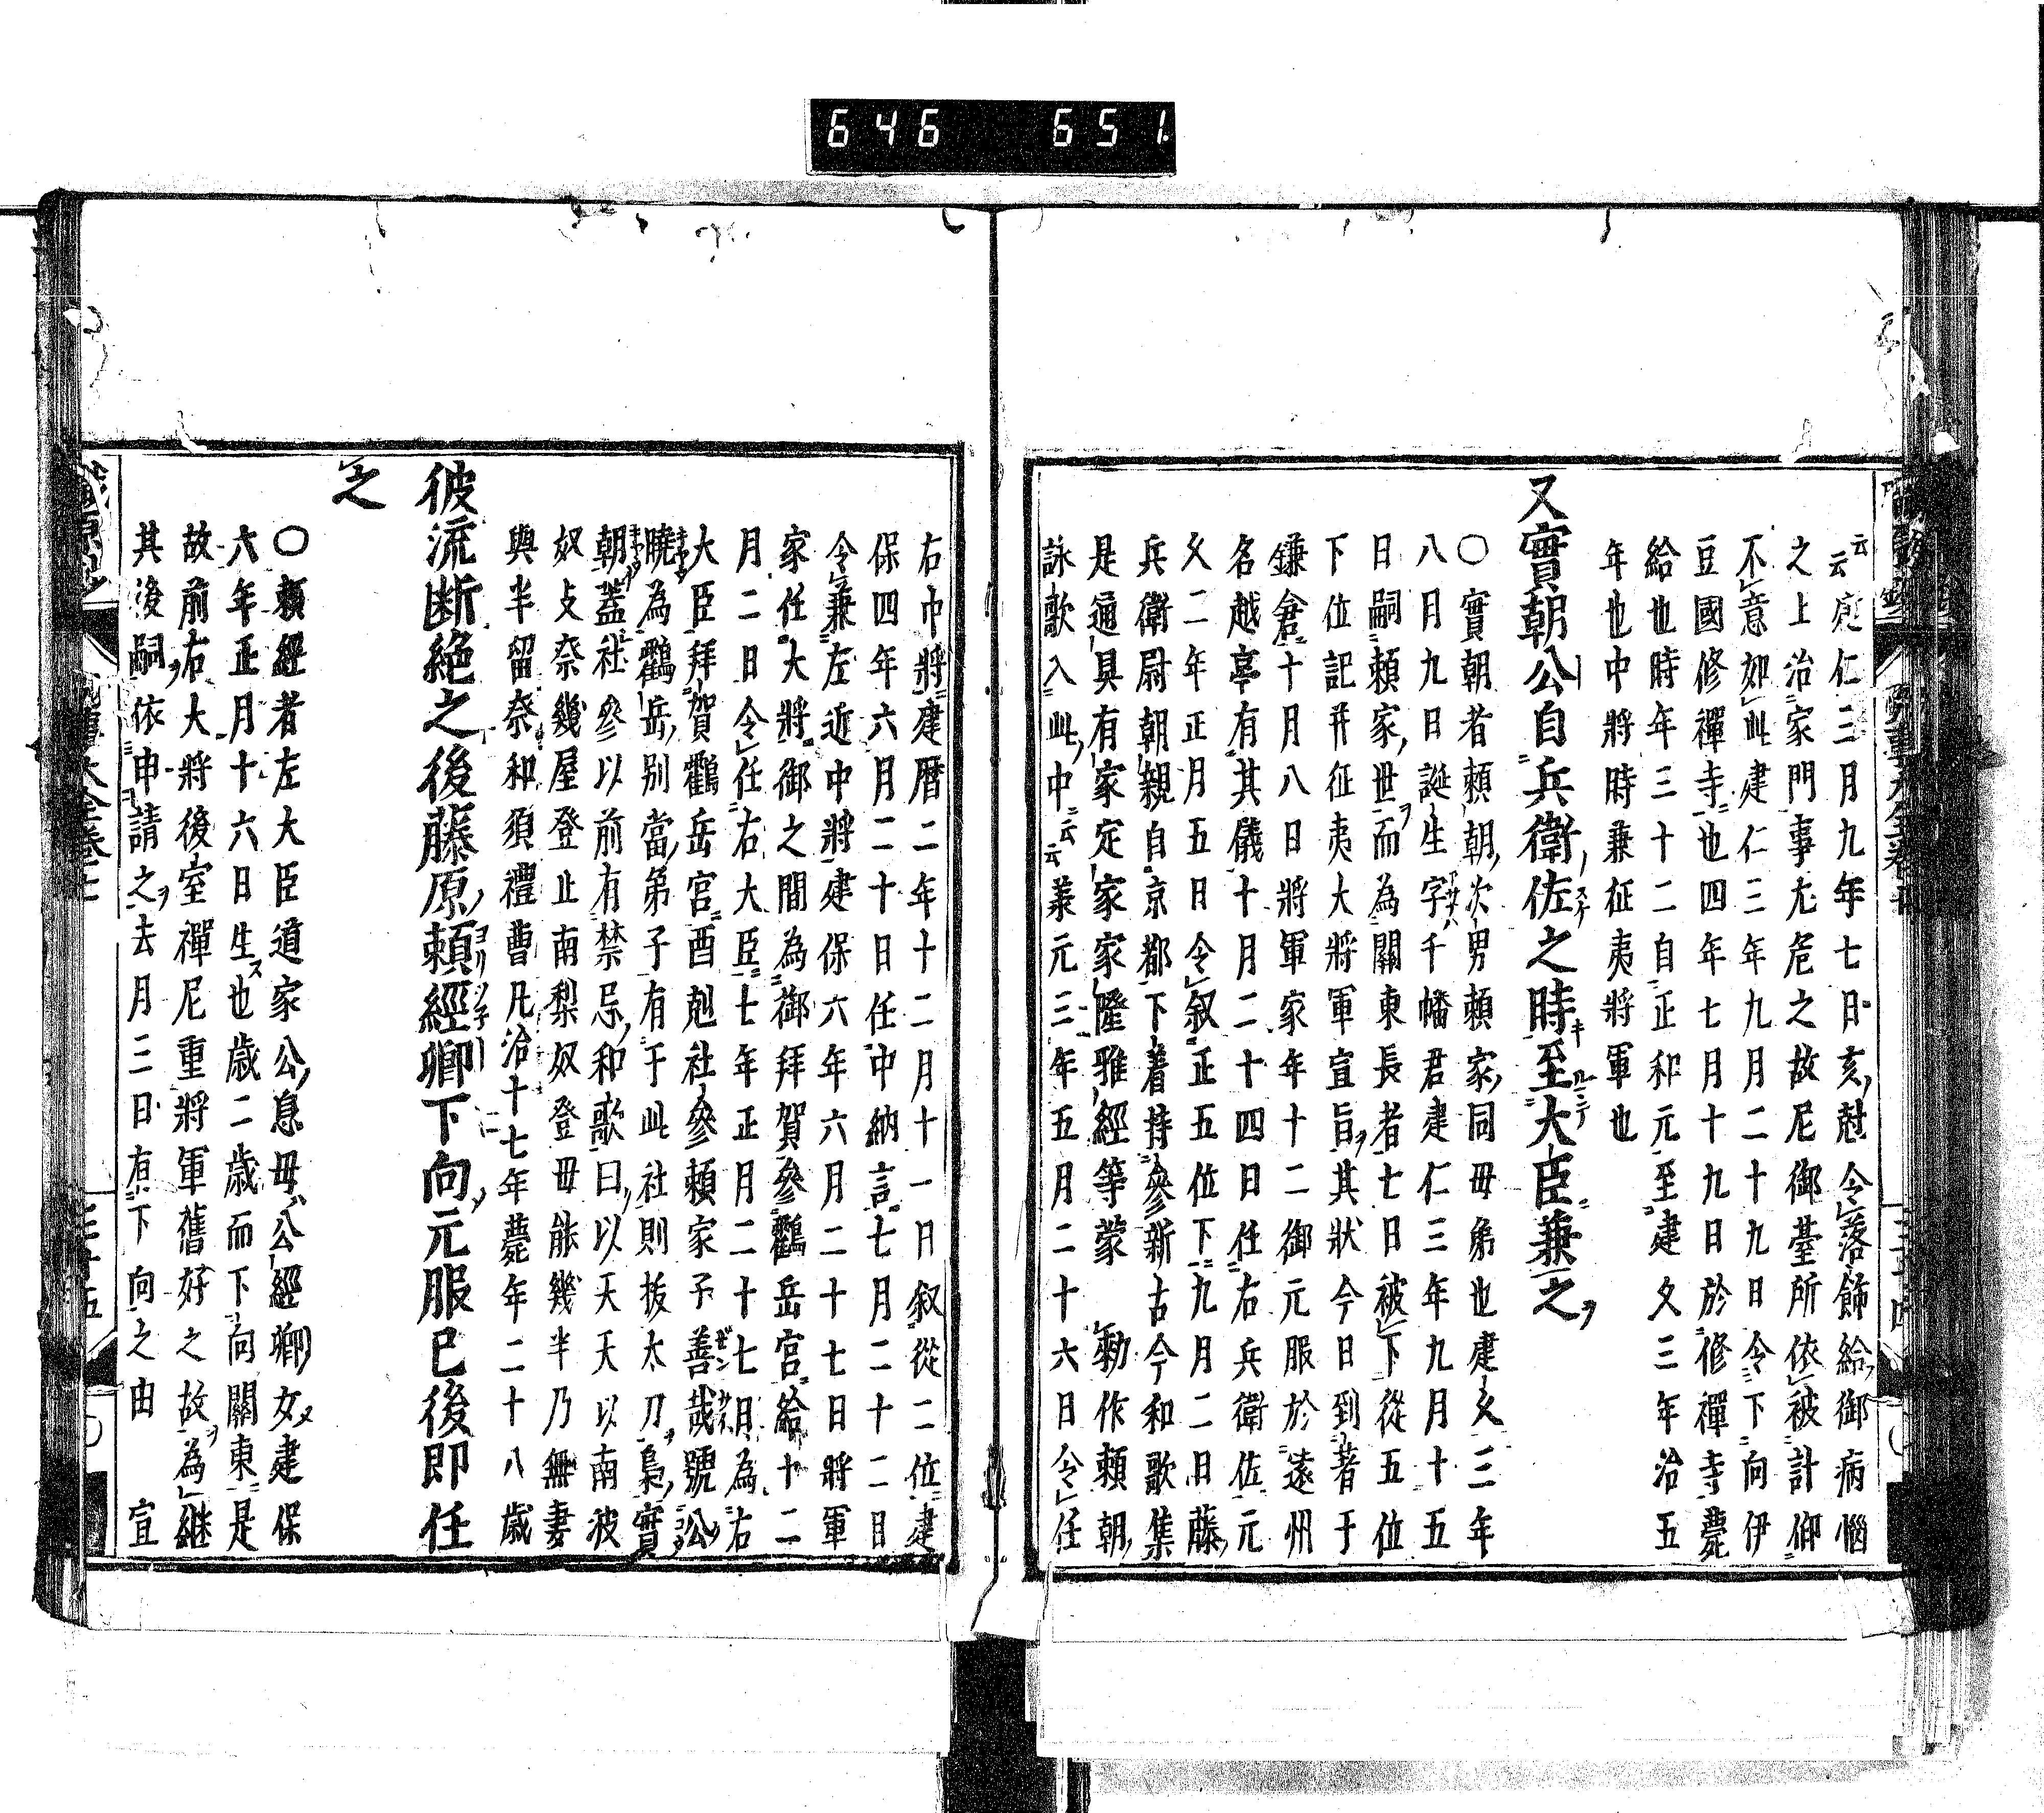 646 651
云云建仁三月九年七日亥尅令落餝給御病惱
之上治家門事尤危之故尼御臺所依被計仰
不意如此建仁三年九月二十九日令下向伊
豆國修禪寺也四年七月十九日於修禪寺薨
給也時年三十二自正和元至建久三年治五
年也中將時兼征夷將軍也
又實朝公自兵衛佐之時至大臣兼之
〇實朝者賴朝次男賴家同母弟也建久三年
八月九日誕生字千幡君建仁三年九月十五
日嗣賴家世而為關東長者七日被下從五位
下位記并征夷大將軍宣旨其狀今日到著于
鎌倉十月八日將軍家年十二御元服於遠州
名越亭有其儀十月二十四日任右兵衛佐元
久二年正月五日令叙正五位下九月二日藤
兵衛尉朝親自京都下着持參新古今和歌集
是通具有家定家家隆雅經等蒙 勅作賴朝
詠歌入此中云云義元三年五月二十六日令任
右中將建暦二年十二月十一日叙從二位建
保四年六月二十日任中納言七月二十二日
令兼左近中將建保六年六月二十七日將軍
家任大將御之間為御拜賀參鸖岳宮給十二
月二日令任右大臣七年正月二十七日為右
大臣拜賀鸖岳宮酉尅社參賴家子善哉號公
曉為鸖岳別當弟子有于此社則拔太刀梟實
朝蓋社參以前有禁忌和歌曰以天天以南波
奴之奈幾屋登止南梨奴登毋能幾半乃無妻
與半留奈和須禮曹凡治十七年薨年二十八歲
彼流断絶之後藤原賴經卿下向元服已後即任
之
〇賴經者左大臣道家公息母公經卿女建保
六年正月十六日生也歲二歲而下向關東是
故前右大將後室禪尼重將軍舊好之故為継
其後嗣依申請之去月三日有下向之由 宣